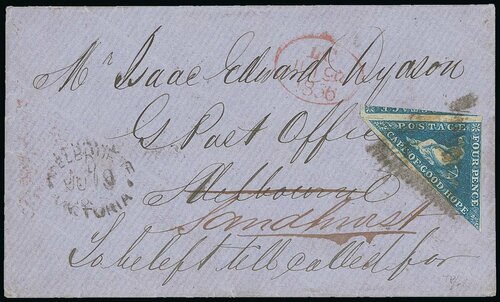 Mr Isaac Edward Dyason
G Post Office
Melbourne
Sandhurst
To be left till called for
POSTAGE
FOUR PENCE
CAPE OF GOOD HOPE
MELBOURNE
VICTORIA